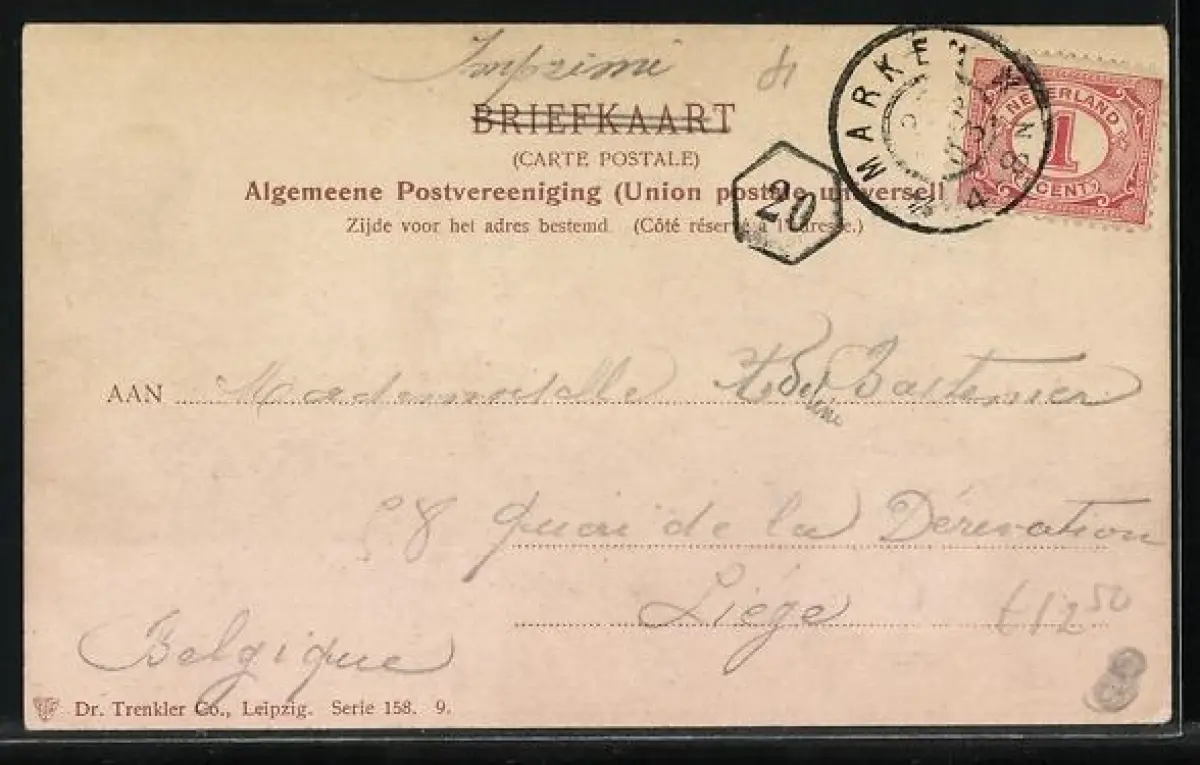 Imprimé
BRIEFKAART
(CARTE POSTALE)
Algemeene Postvereeniging (Union postale universell
Zijde voor het adres bestemd. (Côté réservé à l'adresse.)
MARKEN
4-8N
NEDERLAND
1
CENT
20
AAN Mademoiselle Bastenier
8 Quai de la Dérivation
Liége
Belgique
12 50
Dr. Trenkler Co., Leipzig. Serie 158. 9.